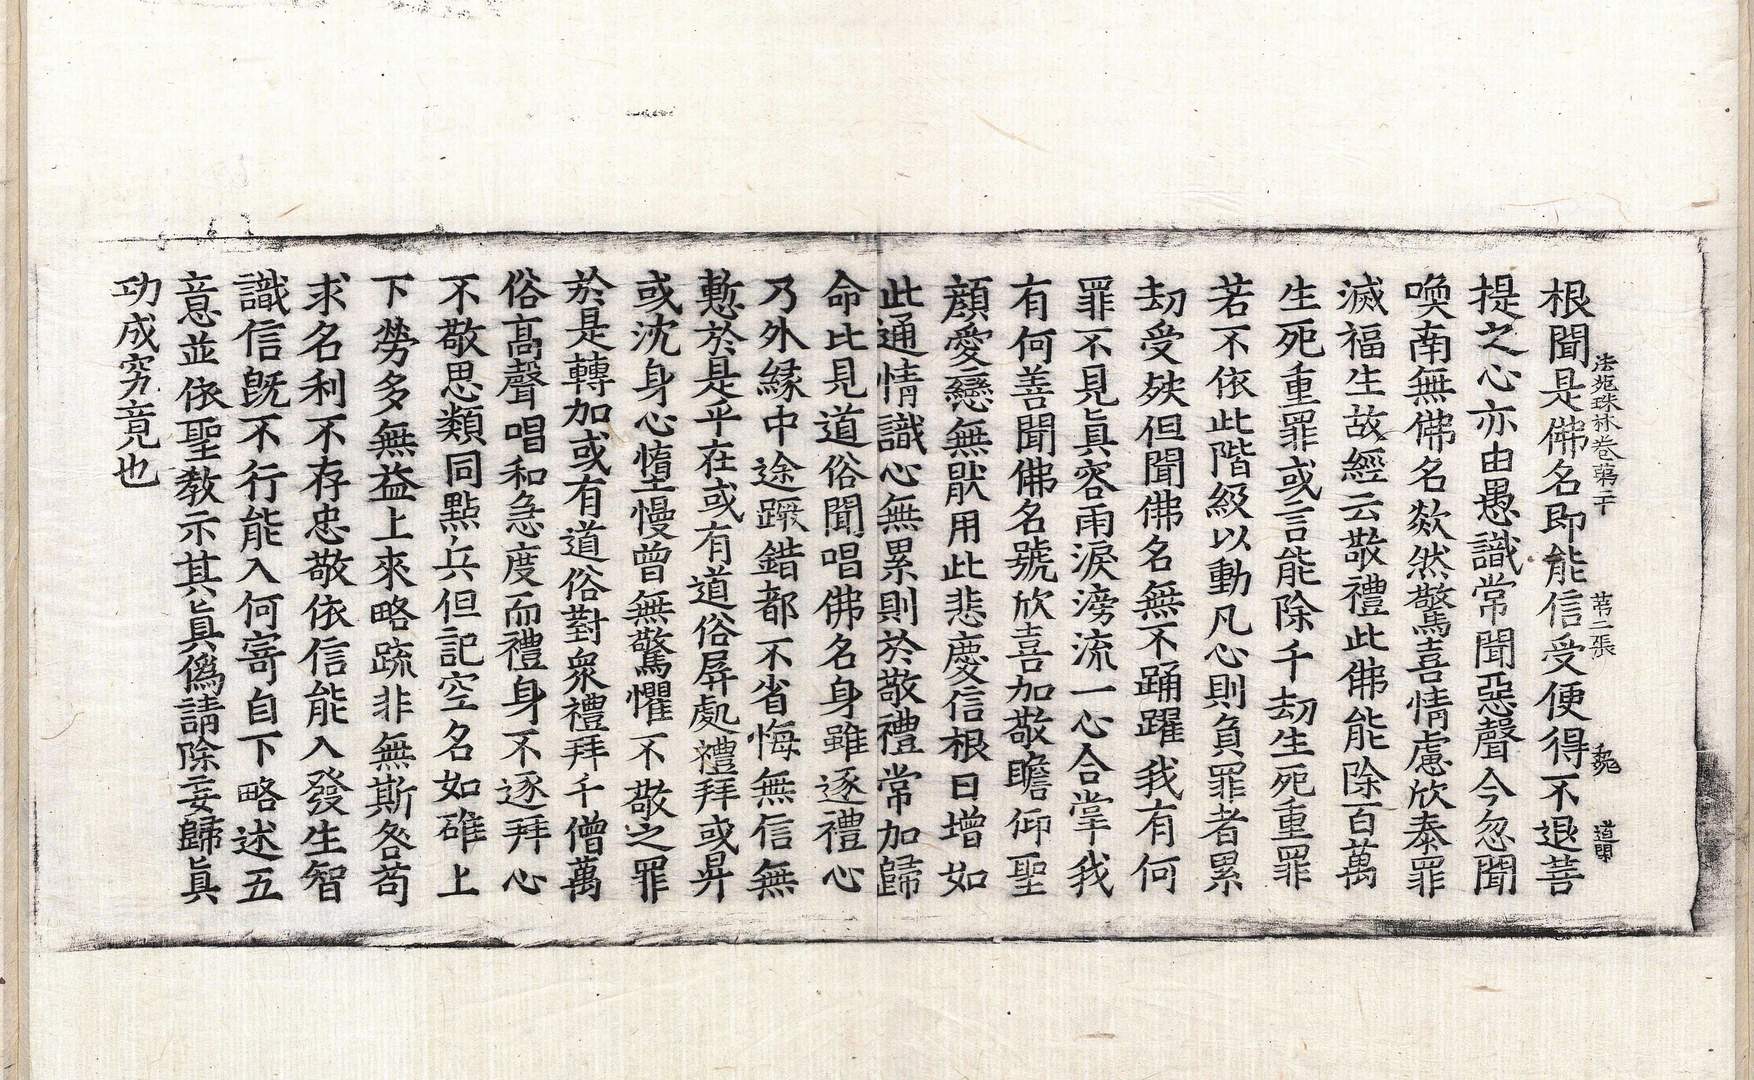 法苑珠林卷第二十 第二張 魏 道開
根聞是佛名即能信受便得不退菩
提之心亦由愚識常聞惡聲今忽聞
喚南無佛名欻然驚喜情慮欣泰罪
滅福生故經云敬禮此佛能除百萬
生死重罪或言能除千劫生死重罪
若不依此階級以動凡心則負罪者累
劫受殃但聞佛名無不踊躍我有何
罪不見真容雨淚滂流一心合掌我
有何善聞佛名號欣喜加敬瞻仰聖
顏愛戀無猒用此悲慶信根日增如
此通情識心無累則於敬禮常加歸
命比見道俗聞唱佛名身雖逐禮心
乃外緣中途蹶錯都不省悔無信無
慙於是乎在或有道俗屏處禮拜或昇
或沈身心憻慢曾無驚懼不敬之罪
於是轉加或有道俗對眾禮拜千僧萬
俗高聲唱和急度而禮身不逐拜心
不敬思類同點兵但記空名如碓上
下勞多無益上來略疏非無斯咎苟
求名利不存忠敬依信能入發生智
識信旣不行能入何寄自下略述五
意並依聖教示其真僞請除妄歸真
功成究竟也